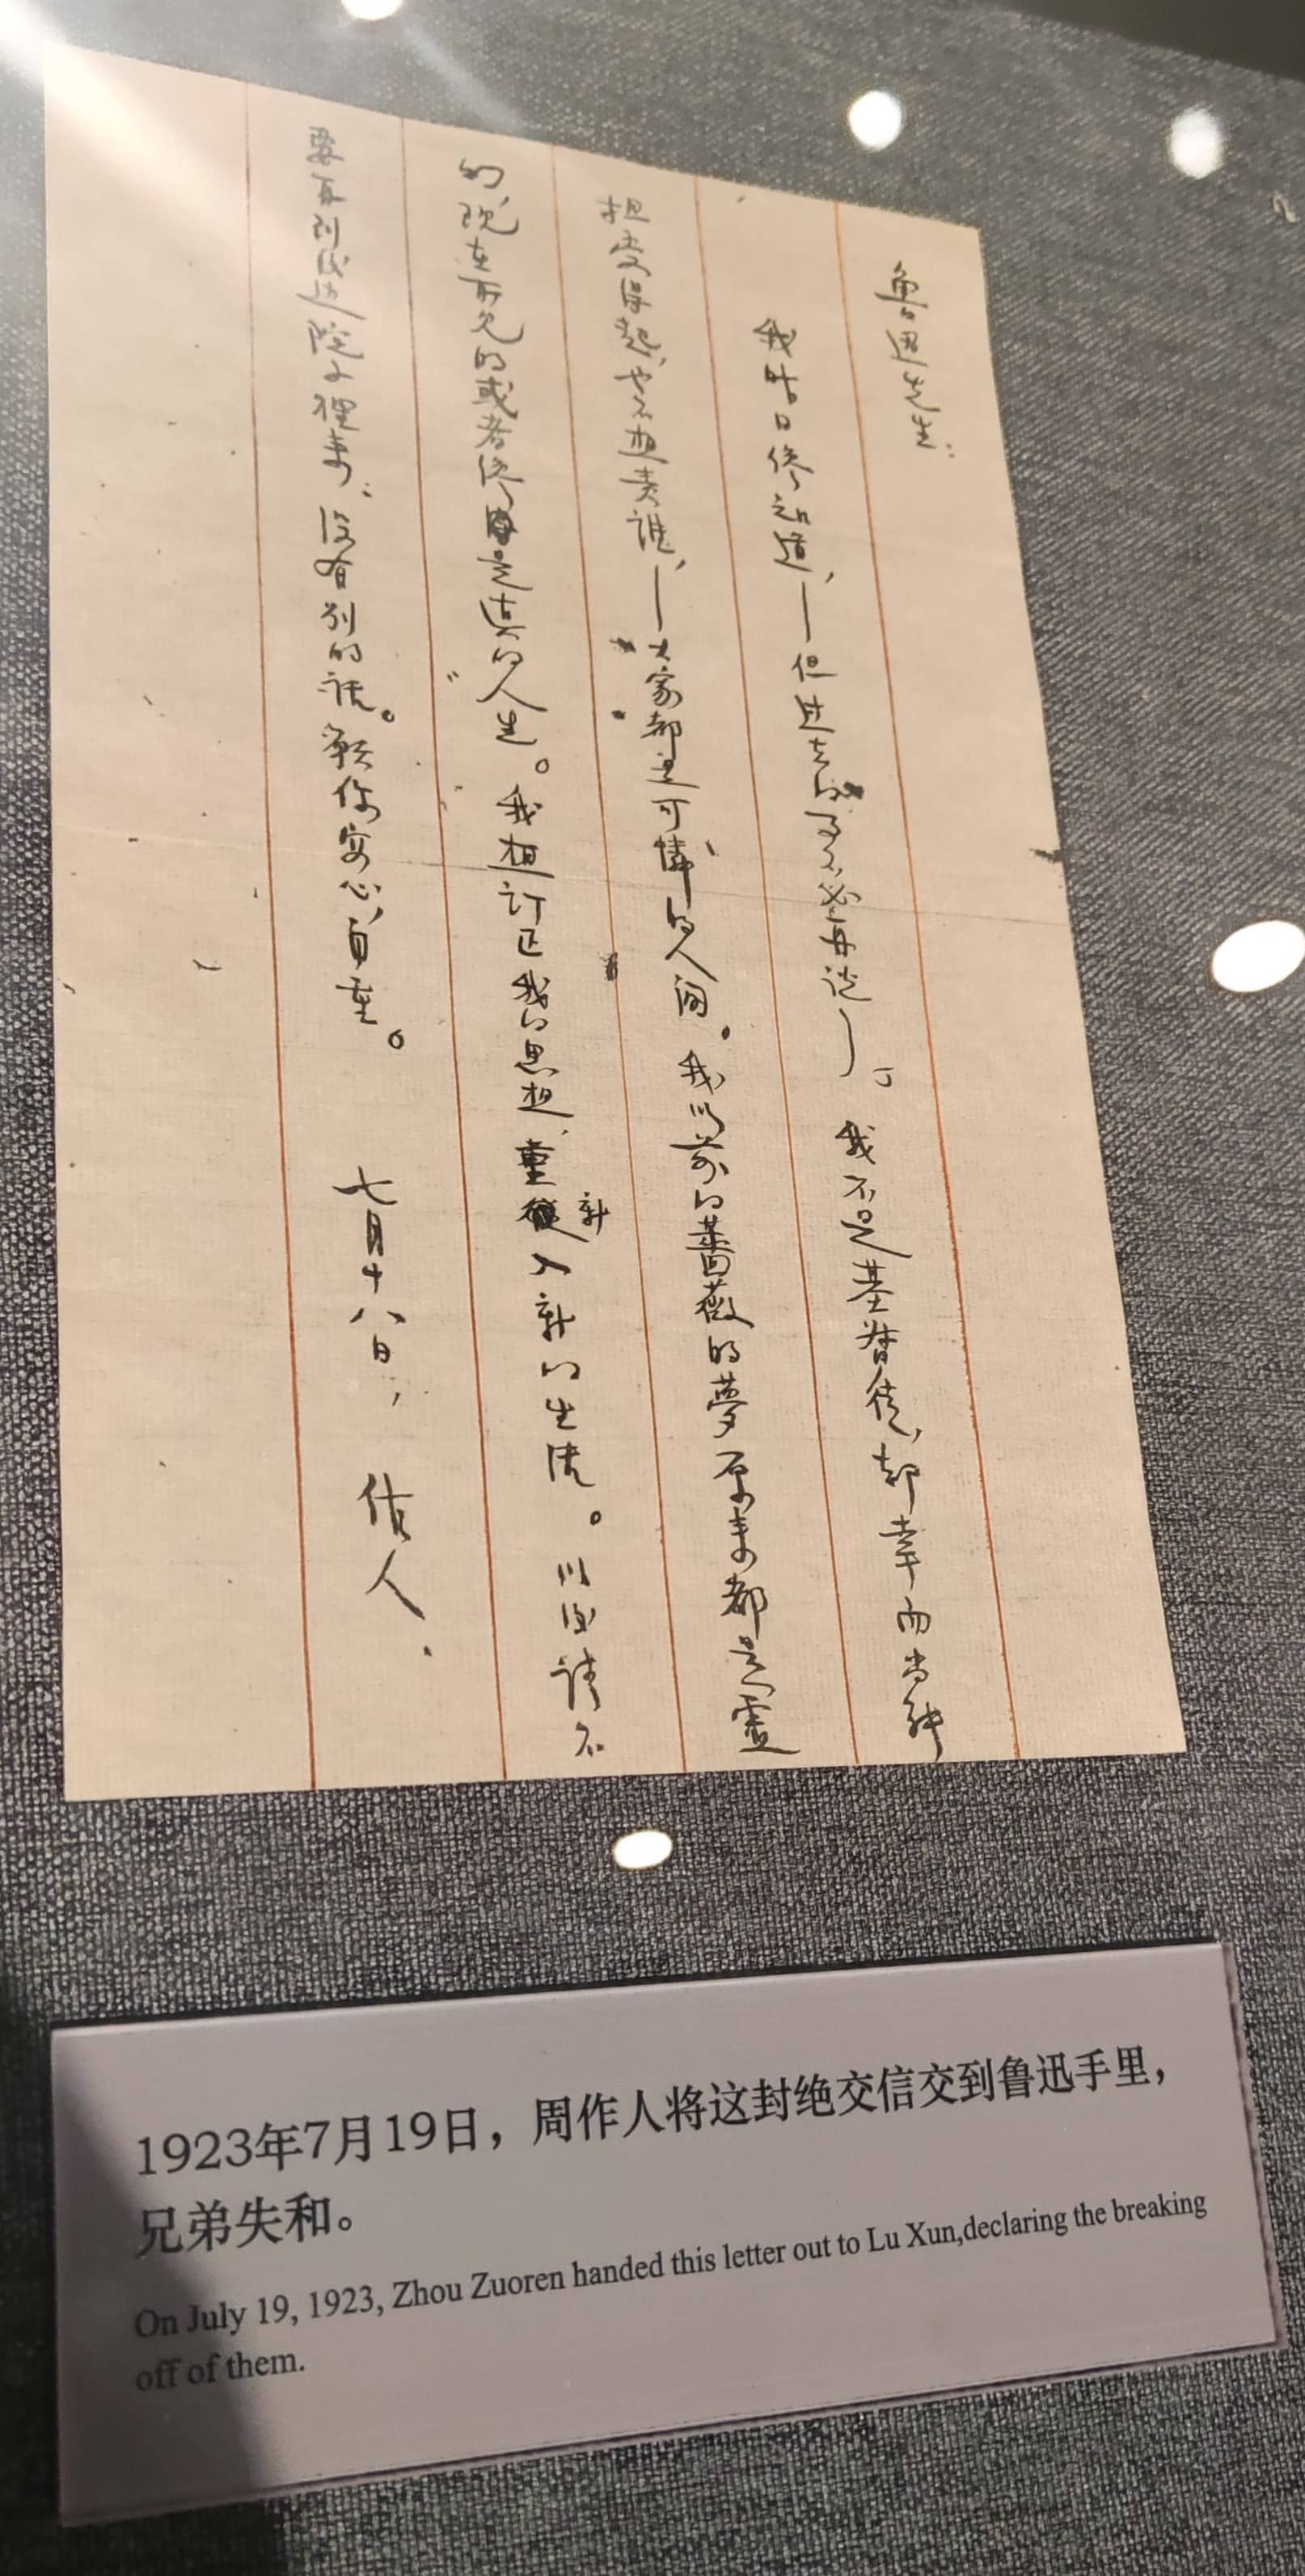 魯迅先生：
我昨日纔知道，—但過去的事不必再說了。我不是基督徒，却幸而尚能
担受得起，也不想責誰，—大家都是可憐的人间。我以前的薔薇的夢原来都是虚
幻，现在所见的或者纔是真的人生。我想訂正我的思想，重新入新的生活。以後請不
要再到後边院子裡来，没有别的話。願你安心，自重。
七月十八日，作人。
1923年7月19日，周作人将这封绝交信交到鲁迅手里，
兄弟失和。
On July 19, 1923, Zhou Zuoren handed this letter out to Lu Xun,declaring the breaking
off of them.